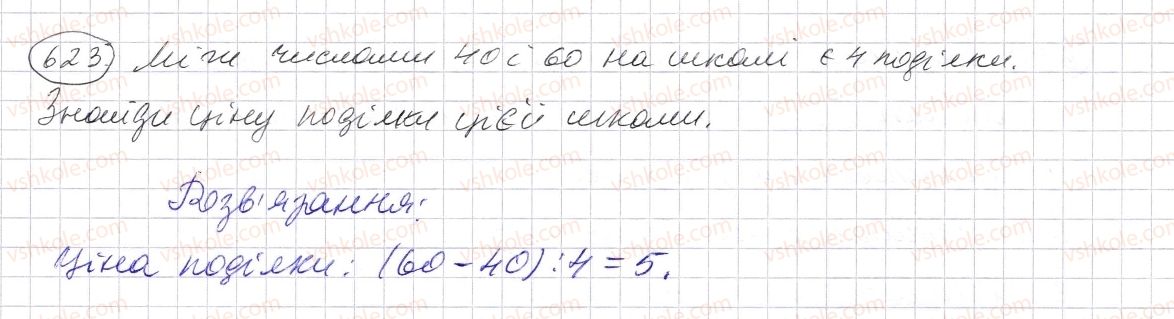 623. Між числами 40 і 60 на шкалі є 4 поділки.
Знайди ціну поділки цієї шкали.
Розв'язання:
Ціна поділки: (60 - 40) : 4 = 5.